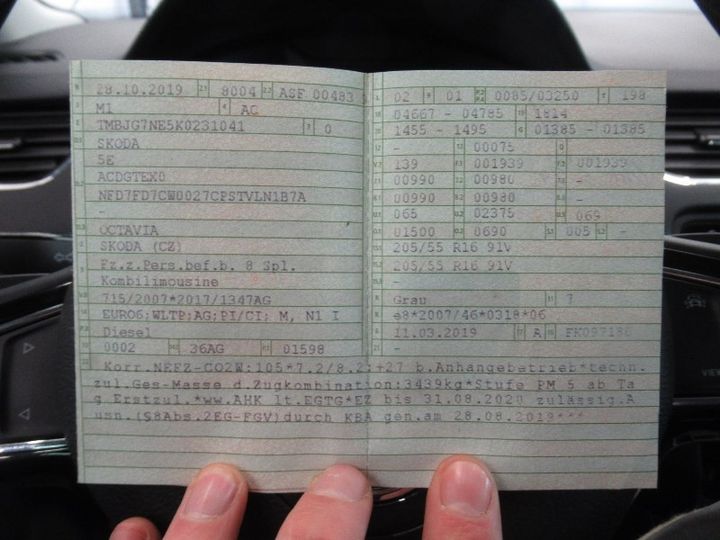 28.10.2019 8004 ASF 00483 5
M1 AC
TMBJG7NE5K0231041 0
SKODA
5E
ACDGTEX0
NFD7FD7CW0027CPSTVLN1B7A
-
OCTAVIA
SKODA (CZ)
Fz.z.Pers.bef.b. 8 Spl.
Kombilimousine
715/2007*2017/1347AG
EURO6;WLTP;AG;PI/CI; M, N1 I
Diesel
0002 36AG 01598
02 01 0085/03250 198
04667 - 04785 1814
1455 - 1495 01385 - 01385
- 00075
139 001939 001939
00990 00980 -
00990 00980 -
065 02375 069
01500 0690 005 -
205/55 R16 91V
205/55 R16 91V
-
Grau 7
e8*2007/46*0318*06
11.03.2019 A
-
Korr.NEFZ-CO2W:105*7.2/8.2:+27 b.Anhangebetrieb*techn.
zul.Ges-Masse d.Zugkombination:3439kg*Stufe PM 5 ab Ta
g Erstzul.*ww.AHK lt.EGTG*EZ bis 31.08.2020 zulässig.A
usn.(§8Abs.2EG-FGV)durch KBA gen.am 28.08.2019***